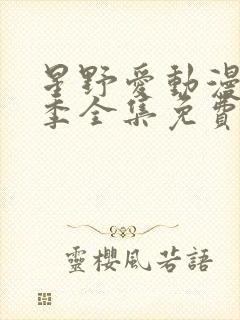 星野愛動漫
季全集免費
靈櫻風若語